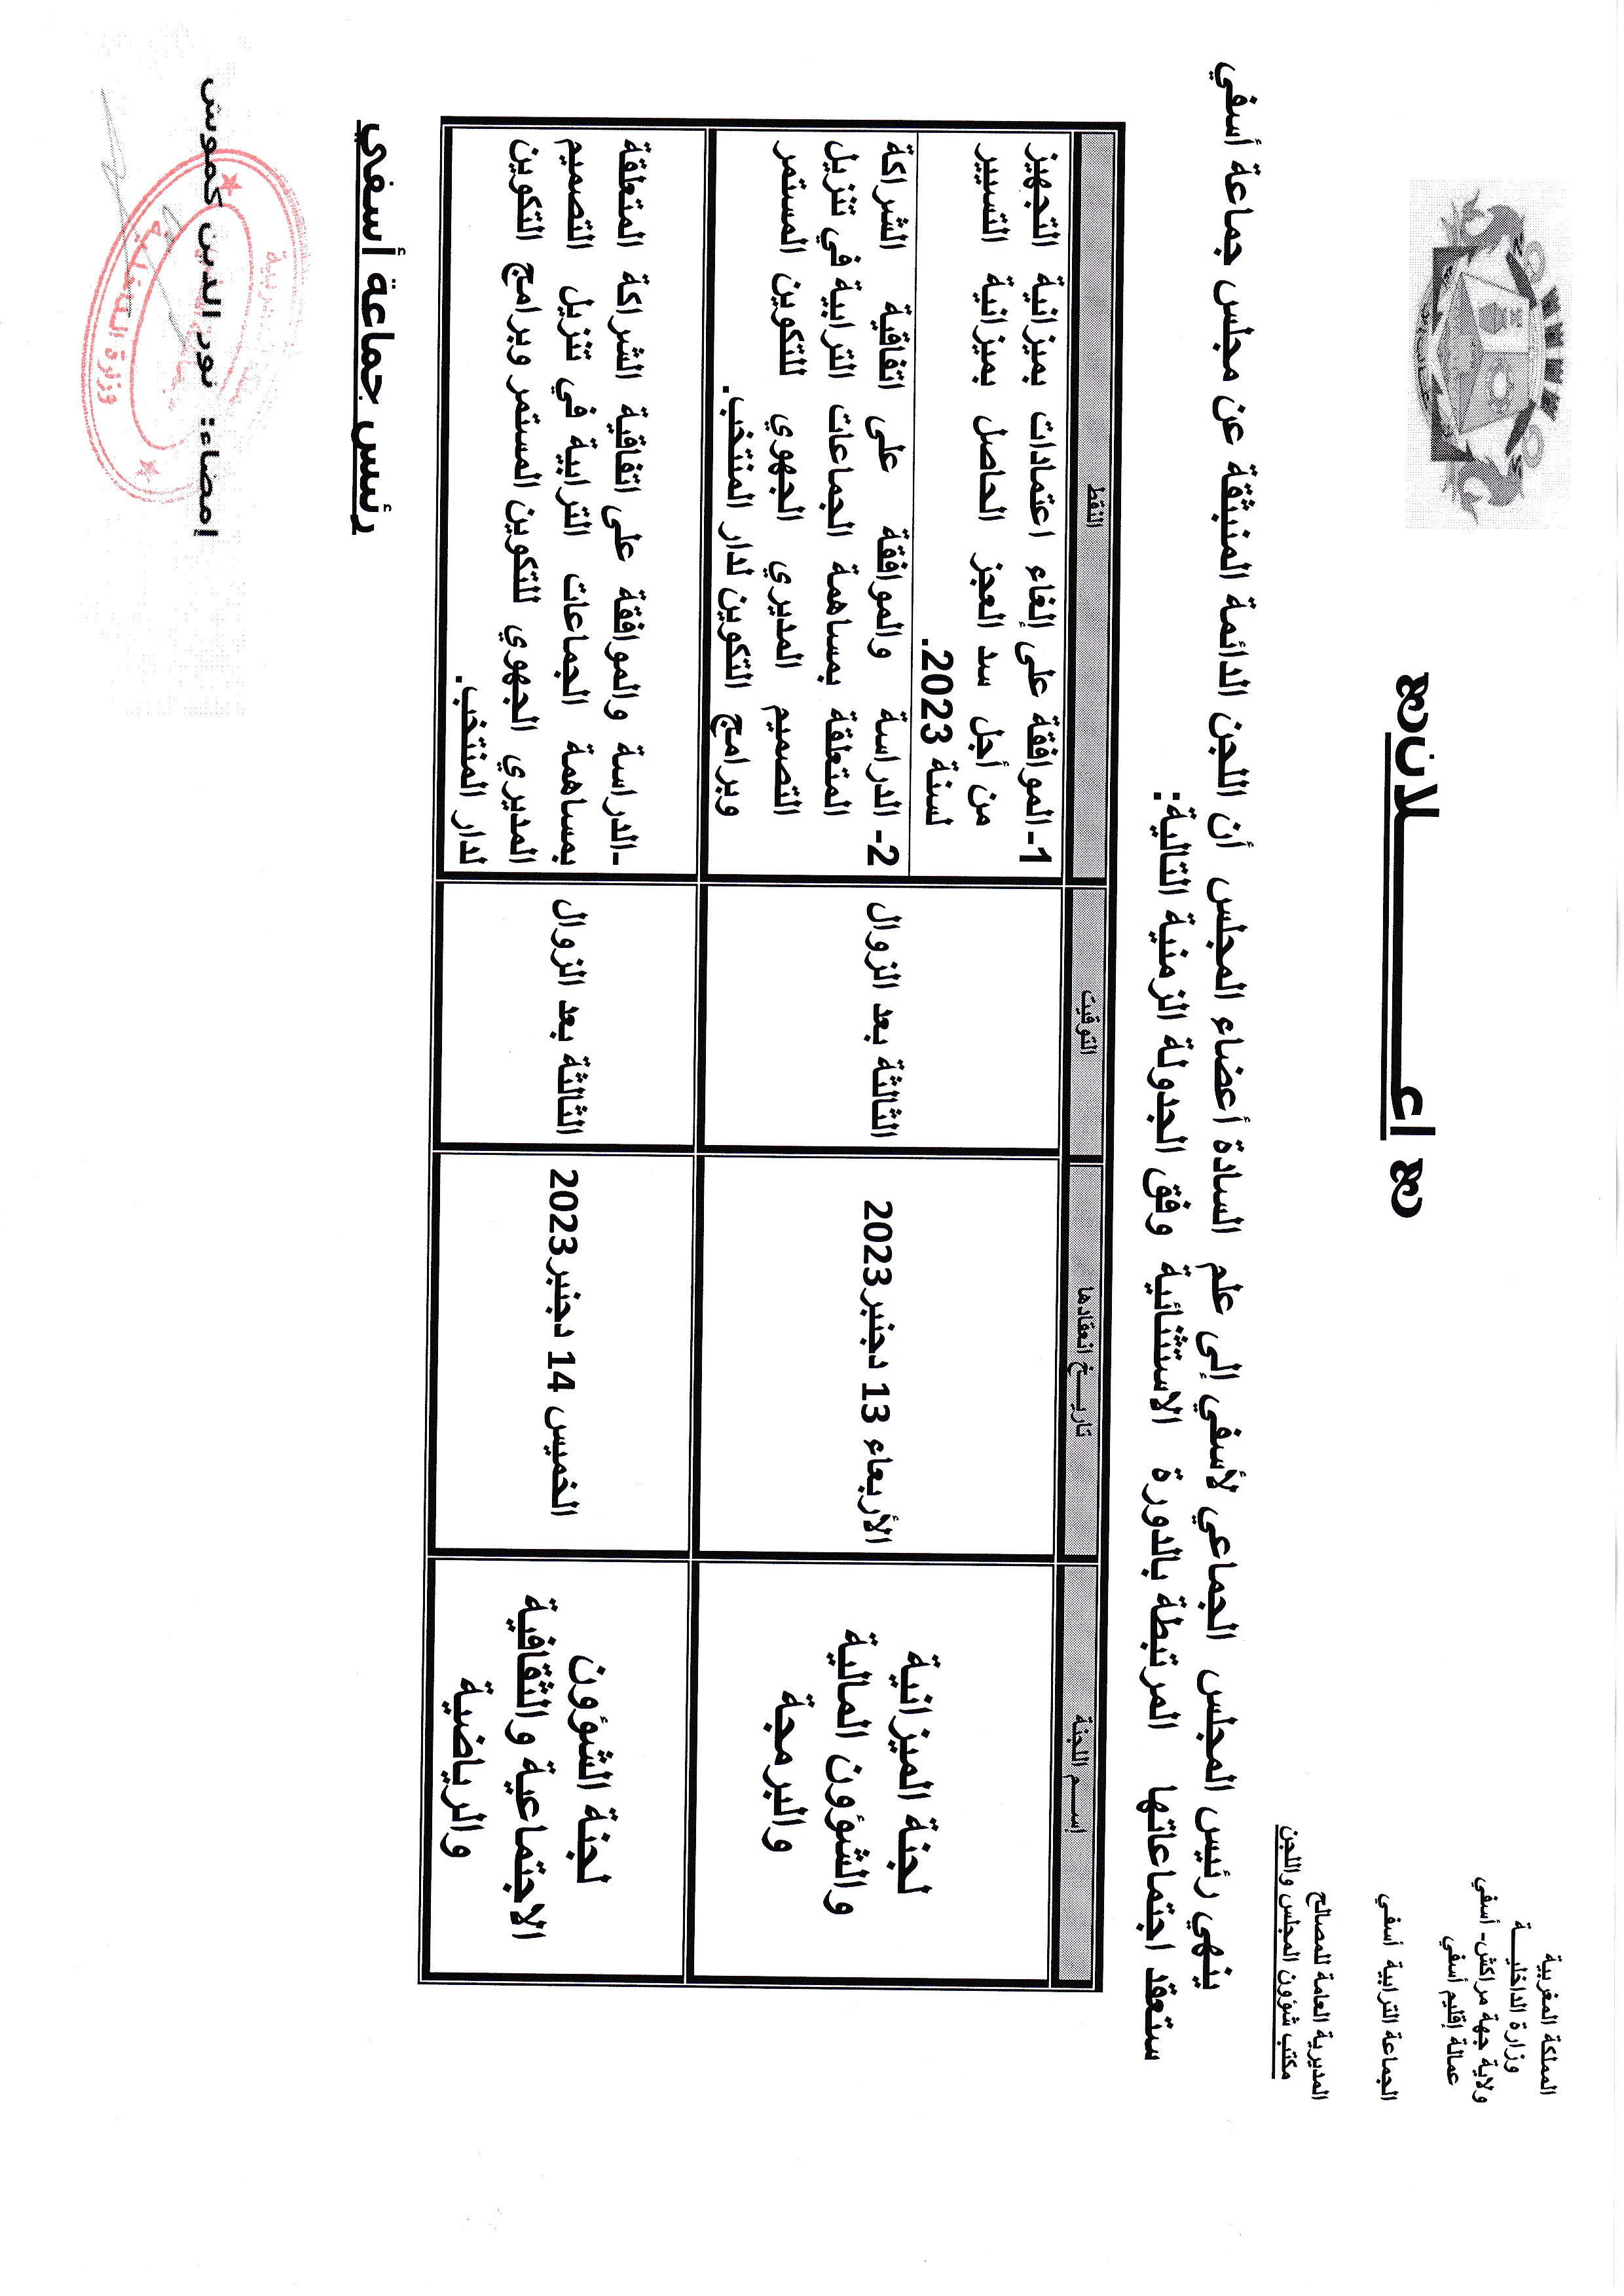 المملكة المغربية
وزارة الداخليـــة
ولاية جهة مراكش- أسفي
عمالة إقليم أسفي
الجماعة الترابية أسفي
المديرية العامة للمصالح
مكتب شؤون المجلس واللجن
اعـــــــــلان
ينهي رئيس المجلس الجماعي لأسفي إلى علم السادة أعضاء المجلس أن اللجن الدائمة المنبثقة عن مجلس جماعة أسفي
ستعقد اجتماعاتها المرتبطة بالدورة الاستثنائية وفق الجدولة الزمنية التالية:
إســـم اللجنة
تاريـــخ انعقادها
التوقيت
النقط
لجنة الميزانية
والشؤون المالية
والبرمجة
الأربعاء 13 دجنبر2023
الثالثة بعد الزوال
1-الموافقة على إلغاء اعتمادات بميزانية التجهيز
من أجل سد العجز الحاصل بميزانية التسيير
لسنة 2023.
2- الدراسة والموافقة على اتفاقية الشراكة
المتعلقة بمساهمة الجماعات الترابية في تنزيل
التصميم المديري الجهوي للتكوين المستمر
وبرامج التكوين لدار المنتخب.
لجنة الشؤون
الاجتماعية والثقافية
والرياضية
الخميس 14 دجنبر2023
الثالثة بعد الزوال
-الدراسة والموافقة على اتفاقية الشراكة المتعلقة
بمساهمة الجماعات الترابية في تنزيل التصميم
المديري الجهوي للتكوين المستمر وبرامج التكوين
لدار المنتخب.
رئيس جماعة أسفي
امضاء: نور الدين كموش
وزارة الداخلية